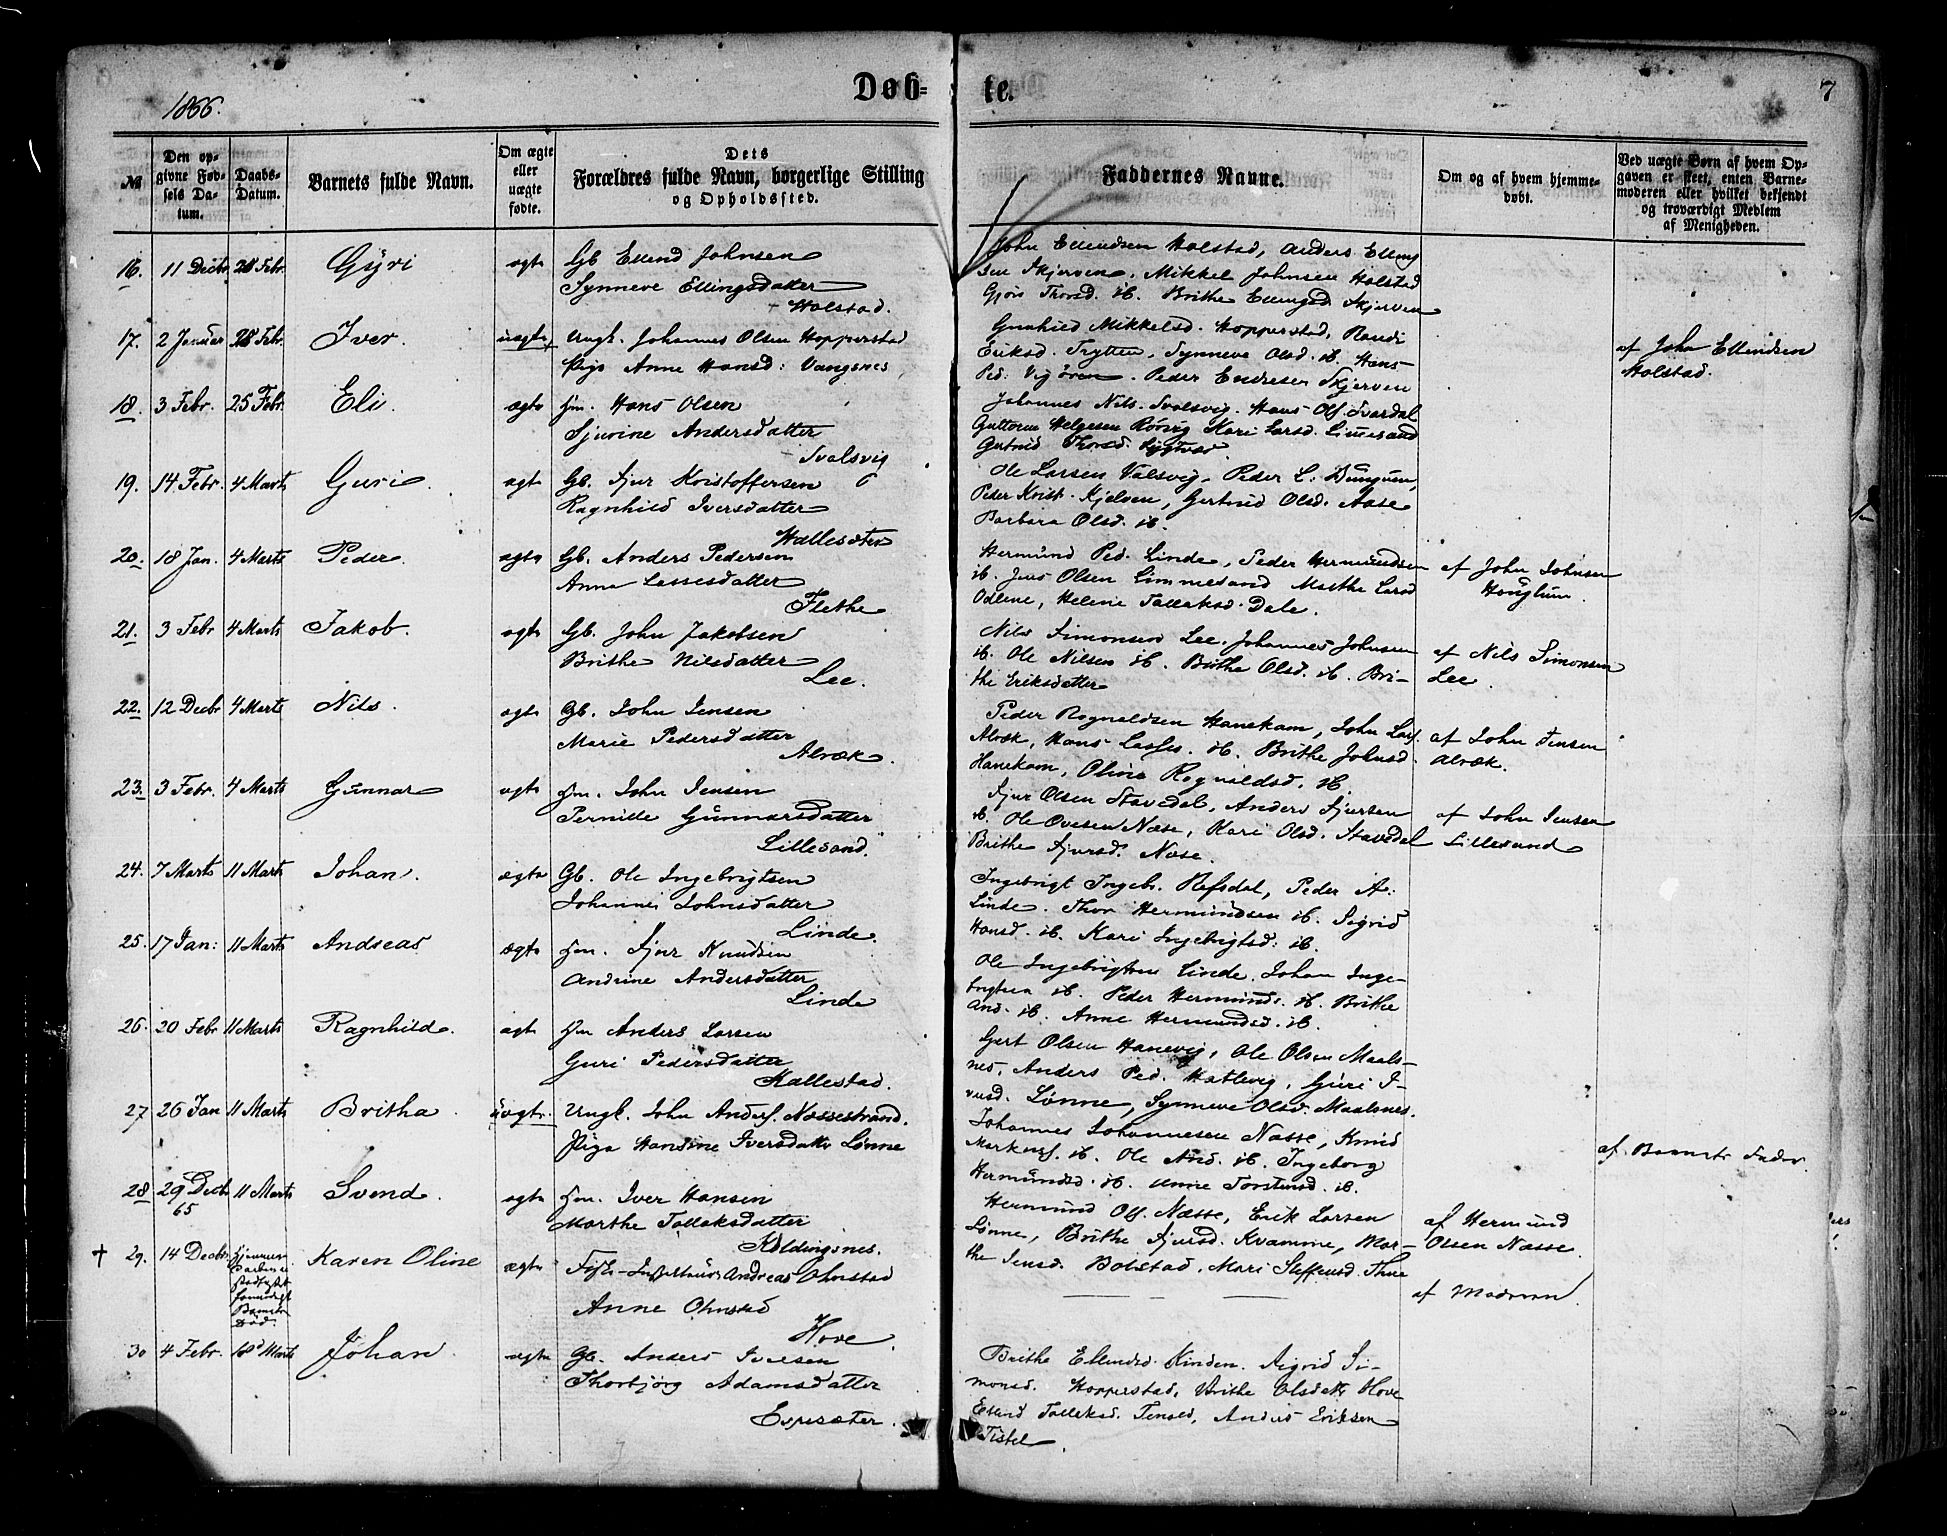 1866.
Døb=
te.
7
№
Den op-
givne Fød-
sels Da-
tum.
Daabs-
Datum.
Barnets fulde Navn.
Om ægte
eller
uægte
fødte.
Dets
Forældres fulde Navn, borgerlige Stilling
og Opholdssted.
Faddernes Navne.
Om og af hvem hjemme-
døbt.
Ved uægte Børn af hvem Op-
gaven er skeet, enten Barne-
moderen eller hvilket bekjendt
og troværdigt Medlem
af Menigheden.
16. 11 Decbr Febr. Gyri ægte Gb Ellend Johnsen
Synneve Ellingsdatter
Holstad.
John Ellendsen Holstad, Anders Elling
sen Skjerven, Mikkel Johnsen Holstad
Thorsd. ib. Brithe Ellingsd Skjerven
17. 2 Januar Febr. Iver. uægte Ungk. Johannes Olsen Hopperstad
Pige Anne Hansd: Vangsnes
Mikkelsd. Hopperstad, Randi
Eriksd. Trytten, Synneve Olsd. ib. Hans
Ped. Peder Endresen Skjerven
af John Ellendsen
Holstad.
18. 3 Febr. 25 Febr. Eli. ægte Hm. Hans Olsen
Sjurine Andersdatter
Svalsvig
Johannes Nils. Svalsvig. Hans Ols. Svardal
Guttorm Helgesen Rørvig Kari Larsd. Limesand
Thorsd.
19. 14 Febr. 4 Marts Guri. ægt Gb. Sjur Kristoffersen
Ragnhild Iversdatter
Hallesæter
Ole Larsen Valsvig, Peder L.
Peder Krist. Gertrud Olsd. Aase
Barbara Olsd. ib.
20. 18 Jan. 4 Marts Peder. ægte Gb. Anders Pedersen
Anna Lassesdatter
Flethe
Hermund Ped. Linde, Peder Hermundsen
ib. Jens Olsen Limmesand Marthe Larsd
Odlene, Helene Tollaksd. Dale.
af John Johnsen
Hønglum.
21. 3 Febr 4 Marts Jakob. ægte Gb. John Jakobsen
Brithe Nilsdatter
Lee.
Nils Simonsen Lee. Johannes Johnsen
ib. Ole Nilsen ib. Brithe Olsd. ib. Bri-
the Eriksdatter
af Nils Simonsen
Lee
22. 12 Decbr 4 Marts Nils. ægte Gb. John Jensen
Marie Pedersdatter
Alræk.
Peder Rognaldsen Hanekam, John Lass.
Alræk, Hans Lasses. ib. Brithe Johnsd.
Hanekam, Oline Rognaldsd. ib.
af John Jensen
Alræk.
23. 3 Febr. 4 Marts Gunnar ægte Hm. John Jensen
Pernille Gunnarsdatter
Lillesand.
Sjur Olsen Stavedal, Anders Sjursen
ib. Ole Ovesen Næse, Kari Olsd. Stavedal
Brithe Sjursd. Næse.
af John Jensen
Lillesund
24. 7 Marts 11 Marts Johan. ægte Gb. Ole Ingebrigtsen
Johanne Johnsdatter
Linde.
Ingebrigt Ingebr. Refsdal, Peder A.
Linde. Thor Hermundsen ib. Sigrid
Hansd. ib. Kari Ingebrigtsd. ib.
25. 17 Jan: 11 Marts Andreas ægte Hm. Sjur Knudsen
Andrine Andersdatter
Linde
Ole Ingebrigtsen Linde. Johan Inge-
brigtsen ib. Peder Hermunds. ib. Brithe
And. ib. Anne Hermundsd. ib.
26. 20 Febr 11 Marts Ragnhild. ægte Hm Anders Larsen
Guri Pedersdatter
Kallestad.
Gert Olsen Hanevig, Ole Olsen Maals-
nes. Anders Ped. Hatlevig, Guri I-
versd. Lønne, Synneve Olsd. Maalsnes.
27 26 Jan 11 Marts Britha uægte. Ungk. John Anders. Næssestrand.
Pige Hansine Iversdatter Lønne
Johannes Johannesen Næsse, Knud
Markuss. ib. Ole And. ib. Ingeborg
Hermundsd. ib. Anne Torstensd. ib.
af Barnets Fader.
28 29 Decb 65 11 Marts Svend. ægte Hm. Iver Hansen
Marthe Tollaksdatter
Koldingsnes.
Hermund Ols. Næsse, Erik Larsen
Lønne, Brithe Sjursd. Kvamme, Mar-
the Jensd. Bolstad. Mari Steffensd. Thue
af Hermund
Olsen Næsse.
† 29. 14 Decbr. Karen Oline ægte Andreas Ohnstad
Anne Ohnstad
Hove
af Moderen
30 4 Febr. 18 Marts Johan ægte Gb. Anders Iversen
Thorbjørg Adamsdatter
Espesæter.
Brithe Ellendsd. Kinden. Sigrid Si-
monsd. Hopperstad, Brithe Olsdatr Hove
Erlend Tollaksd. Tenold, Anders Eriksen
Tistel